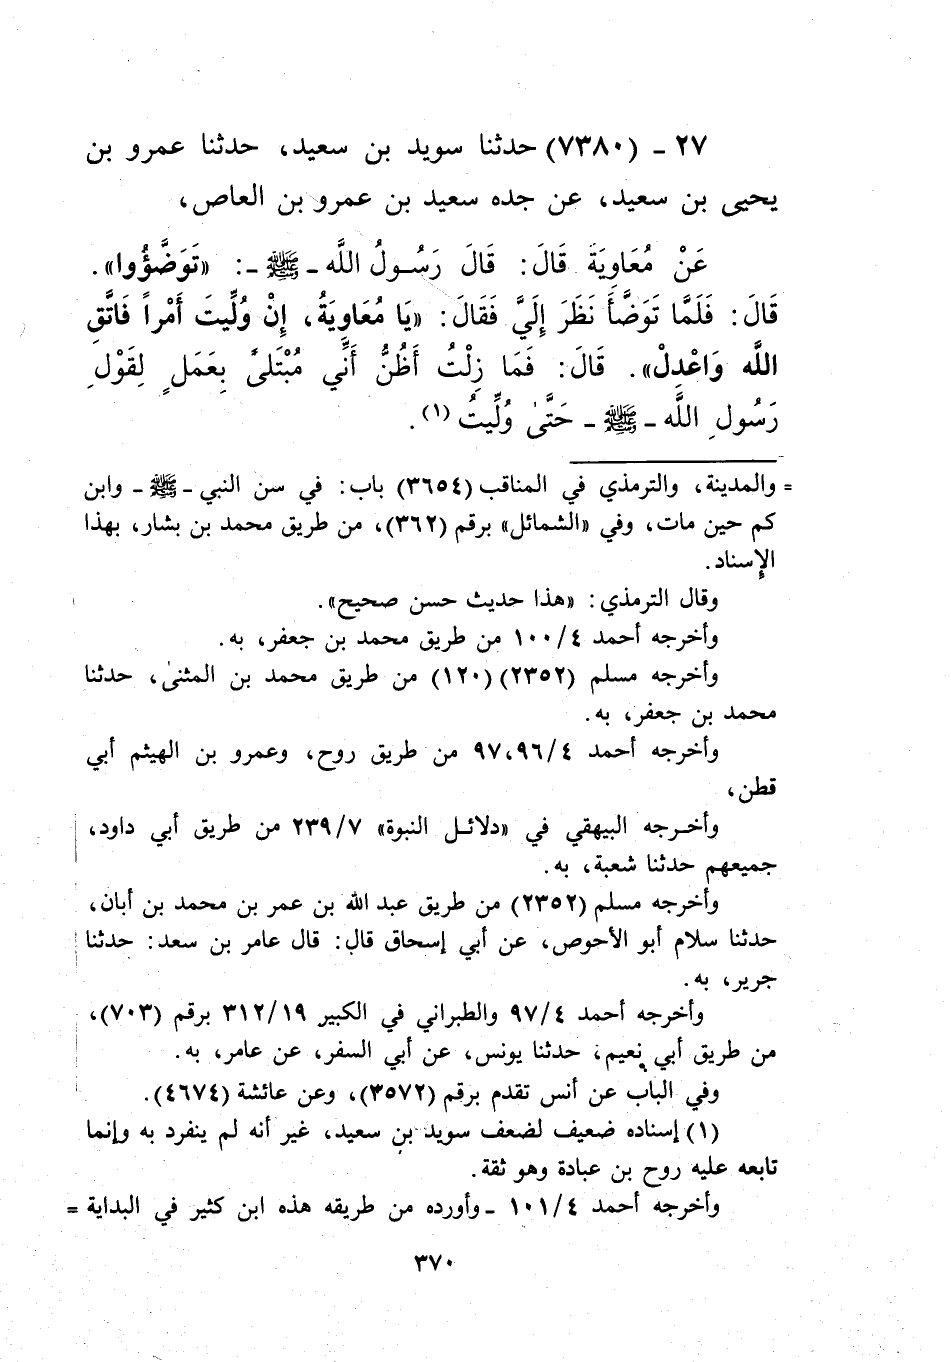 ٢٧ - (٧٣٨٠) حدثنا سويد بن سعيد، حدثنا عمرو بن
يحيى بن سعيد، عن جده سعيد بن عمرو بن العاص،
عَنْ مُعَاوِيَةَ قَالَ: قَالَ رَسُولُ اللَّه - ﷺ -: «تَوَضَّؤُوا».
قَالَ: فَلَمَّا تَوَضَّأَ نَظَرَ إِلَيَّ فَقَالَ: «يَا مُعَاوِيَةُ، إِنْ وُلِّيتَ أَمْراً فَاتَّقِ
اللَّه وَاعْدِلْ». قَالَ: فَمَا زِلْتُ أَظُنُّ أَنِّي مُبْتَلىً بِعَمَلٍ لِقَوْلِ
رَسُولِ اللَّه - ﷺ - حَتَّى وُلِّيتُ (١).
= والمدينة، والترمذي في المناقب (٣٦٥٤) باب: في سن النبي - ﷺ - وابن
كم حين مات، وفي «الشمائل» برقم (٣٦٢)، من طريق محمد بن بشار، بهذا
الإسناد.
وقال الترمذي: «هذا حديث حسن صحيح».
وأخرجه أحمد ٤/١٠٠ من طريق محمد بن جعفر، به.
وأخرجه مسلم (٢٣٥٢) (١٢٠) من طريق محمد بن المثنىٰ، حدثنا
محمد بن جعفر، به.
وأخرجه أحمد ٤/٩٦،٩٧ من طريق روح، وعمرو بن الهيثم أبي
قطن،
وأخرجه البيهقي في «دلائل النبوة» ٧/٢٣٩ من طريق أبي داود،
جميعهم حدثنا شعبة، به.
وأخرجه مسلم (٢٣٥٢) من طريق عبد الله بن عمر بن محمد بن أبان،
حدثنا سلام أبو الأحوص، عن أبي إسحاق قال: قال عامر بن سعد: حدثنا
جرير، به.
وأخرجه أحمد ٤/٩٧ والطبراني في الكبير ١٩/٣١٢ برقم (٧٠٣)،
من طريق أبي نعيم، حدثنا يونس، عن أبي السفر، عن عامر، به.
وفي الباب عن أنس تقدم برقم (٣٥٧٢)، وعن عائشة (٤٦٧٤).
(١) إسناده ضعيف لضعف سويد بن سعيد، غير أنه لم ينفرد به وإنما
تابعه عليه روح بن عبادة وهو ثقة.
وأخرجه أحمد ٤/١٠١ - وأورده من طريقه هذه ابن كثير في البداية =
٣٧٠